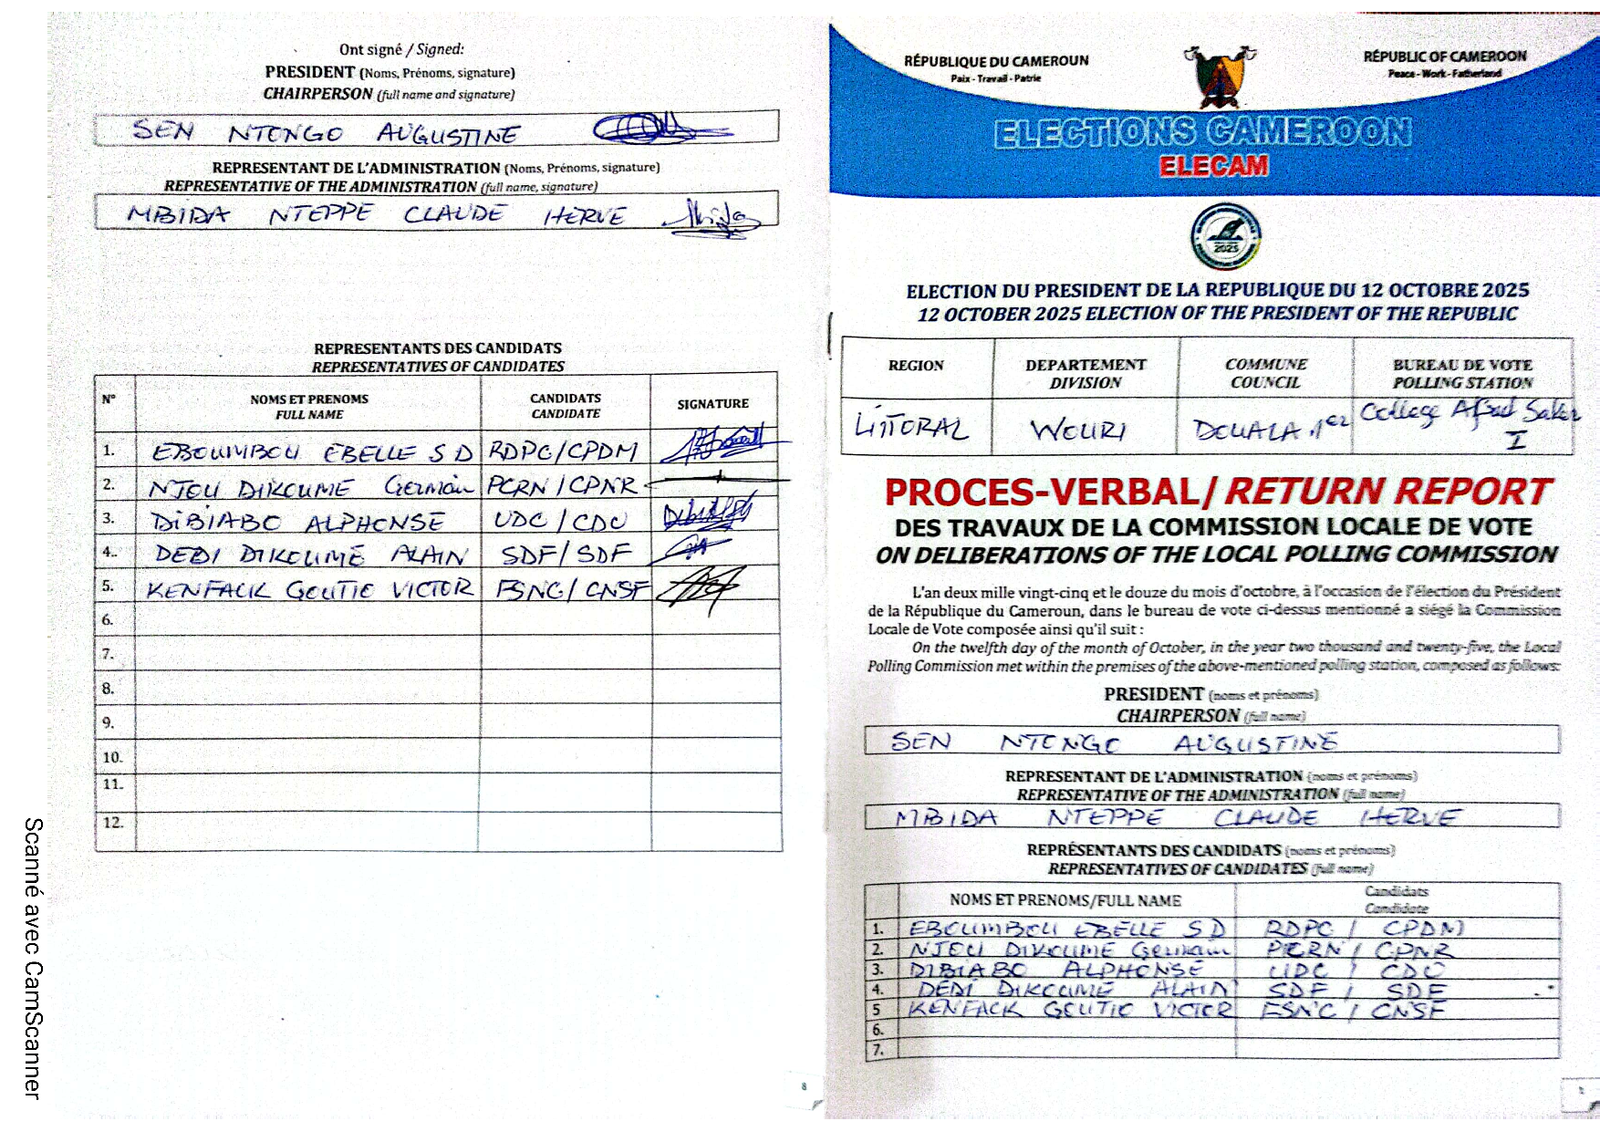 Ont signé / Signed:
PRESIDENT (Noms, Prénoms, signature)
CHAIRPERSON (full name and signature)
SEN NTONGO AUGUSTINE
REPRESENTANT DE L'ADMINISTRATION (Noms, Prénoms, signature)
REPRESENTATIVE OF THE ADMINISTRATION (full name, signature)
MBIDA NTEPPE CLAUDE HERVE
REPRESENTANTS DES CANDIDATS
REPRESENTATIVES OF CANDIDATES
N° NOMS ET PRENOMS FULL NAME CANDIDATS CANDIDATE SIGNATURE
1. EBOUMBOU EBELLE S D RDPC/CPDM
2. NJOU DIKOUME Germain PCRN/CPNR
3. DIBIABO ALPHONSE UDC/CDU
4. DEDI DIKOUME ALAIN SDF/SDF
5. KENFACK GOUTIO VICTOR FSNC/CNSF
6.
7.
8.
9.
10.
11.
12.
8
Scanné avec CamScanner
RÉPUBLIQUE DU CAMEROUN
Paix - Travail - Patrie
RÉPUBLIC OF CAMEROON
Peace - Work - Fatherland
ELECTIONS CAMEROON
ELECAM
2025
ELECTION DU PRESIDENT DE LA REPUBLIQUE DU 12 OCTOBRE 2025
12 OCTOBER 2025 ELECTION OF THE PRESIDENT OF THE REPUBLIC
REGION DEPARTEMENT DIVISION COMMUNE COUNCIL BUREAU DE VOTE POLLING STATION
LITTORAL WOURI DOUALA 1er College Alfred Saker I
PROCES-VERBAL/ RETURN REPORT
DES TRAVAUX DE LA COMMISSION LOCALE DE VOTE
ON DELIBERATIONS OF THE LOCAL POLLING COMMISSION
L'an deux mille vingt-cinq et le douze du mois d'octobre, à l'occasion de l'élection du Président
de la République du Cameroun, dans le bureau de vote ci-dessus mentionné a siégé la Commission
Locale de Vote composée ainsi qu'il suit :
On the twelfth day of the month of October, in the year two thousand and twenty-five, the Local
Polling Commission met within the premises of the above-mentioned polling station, composed as follows:
PRESIDENT (noms et prénoms)
CHAIRPERSON (full name)
SEN NTONGO AUGUSTINE
REPRESENTANT DE L'ADMINISTRATION (noms et prénoms)
REPRESENTATIVE OF THE ADMINISTRATION (full name)
MBIDA NTEPPE CLAUDE HERVE
REPRÉSENTANTS DES CANDIDATS (noms et prénoms)
REPRESENTATIVES OF CANDIDATES (full name)
NOMS ET PRENOMS/FULL NAME Candidats Candidate
1. EBOUMBOU EBELLE S D RDPC / CPDM
2. NJOU DIKOUME Germain PCRN / CPNR
3. DIBIABO ALPHONSE UDC / CDU
4. DEDI DIKOUME ALAIN SDF / SDF
5 KENFACK GOUTIO VICTOR FSNC / CNSF
6.
7.